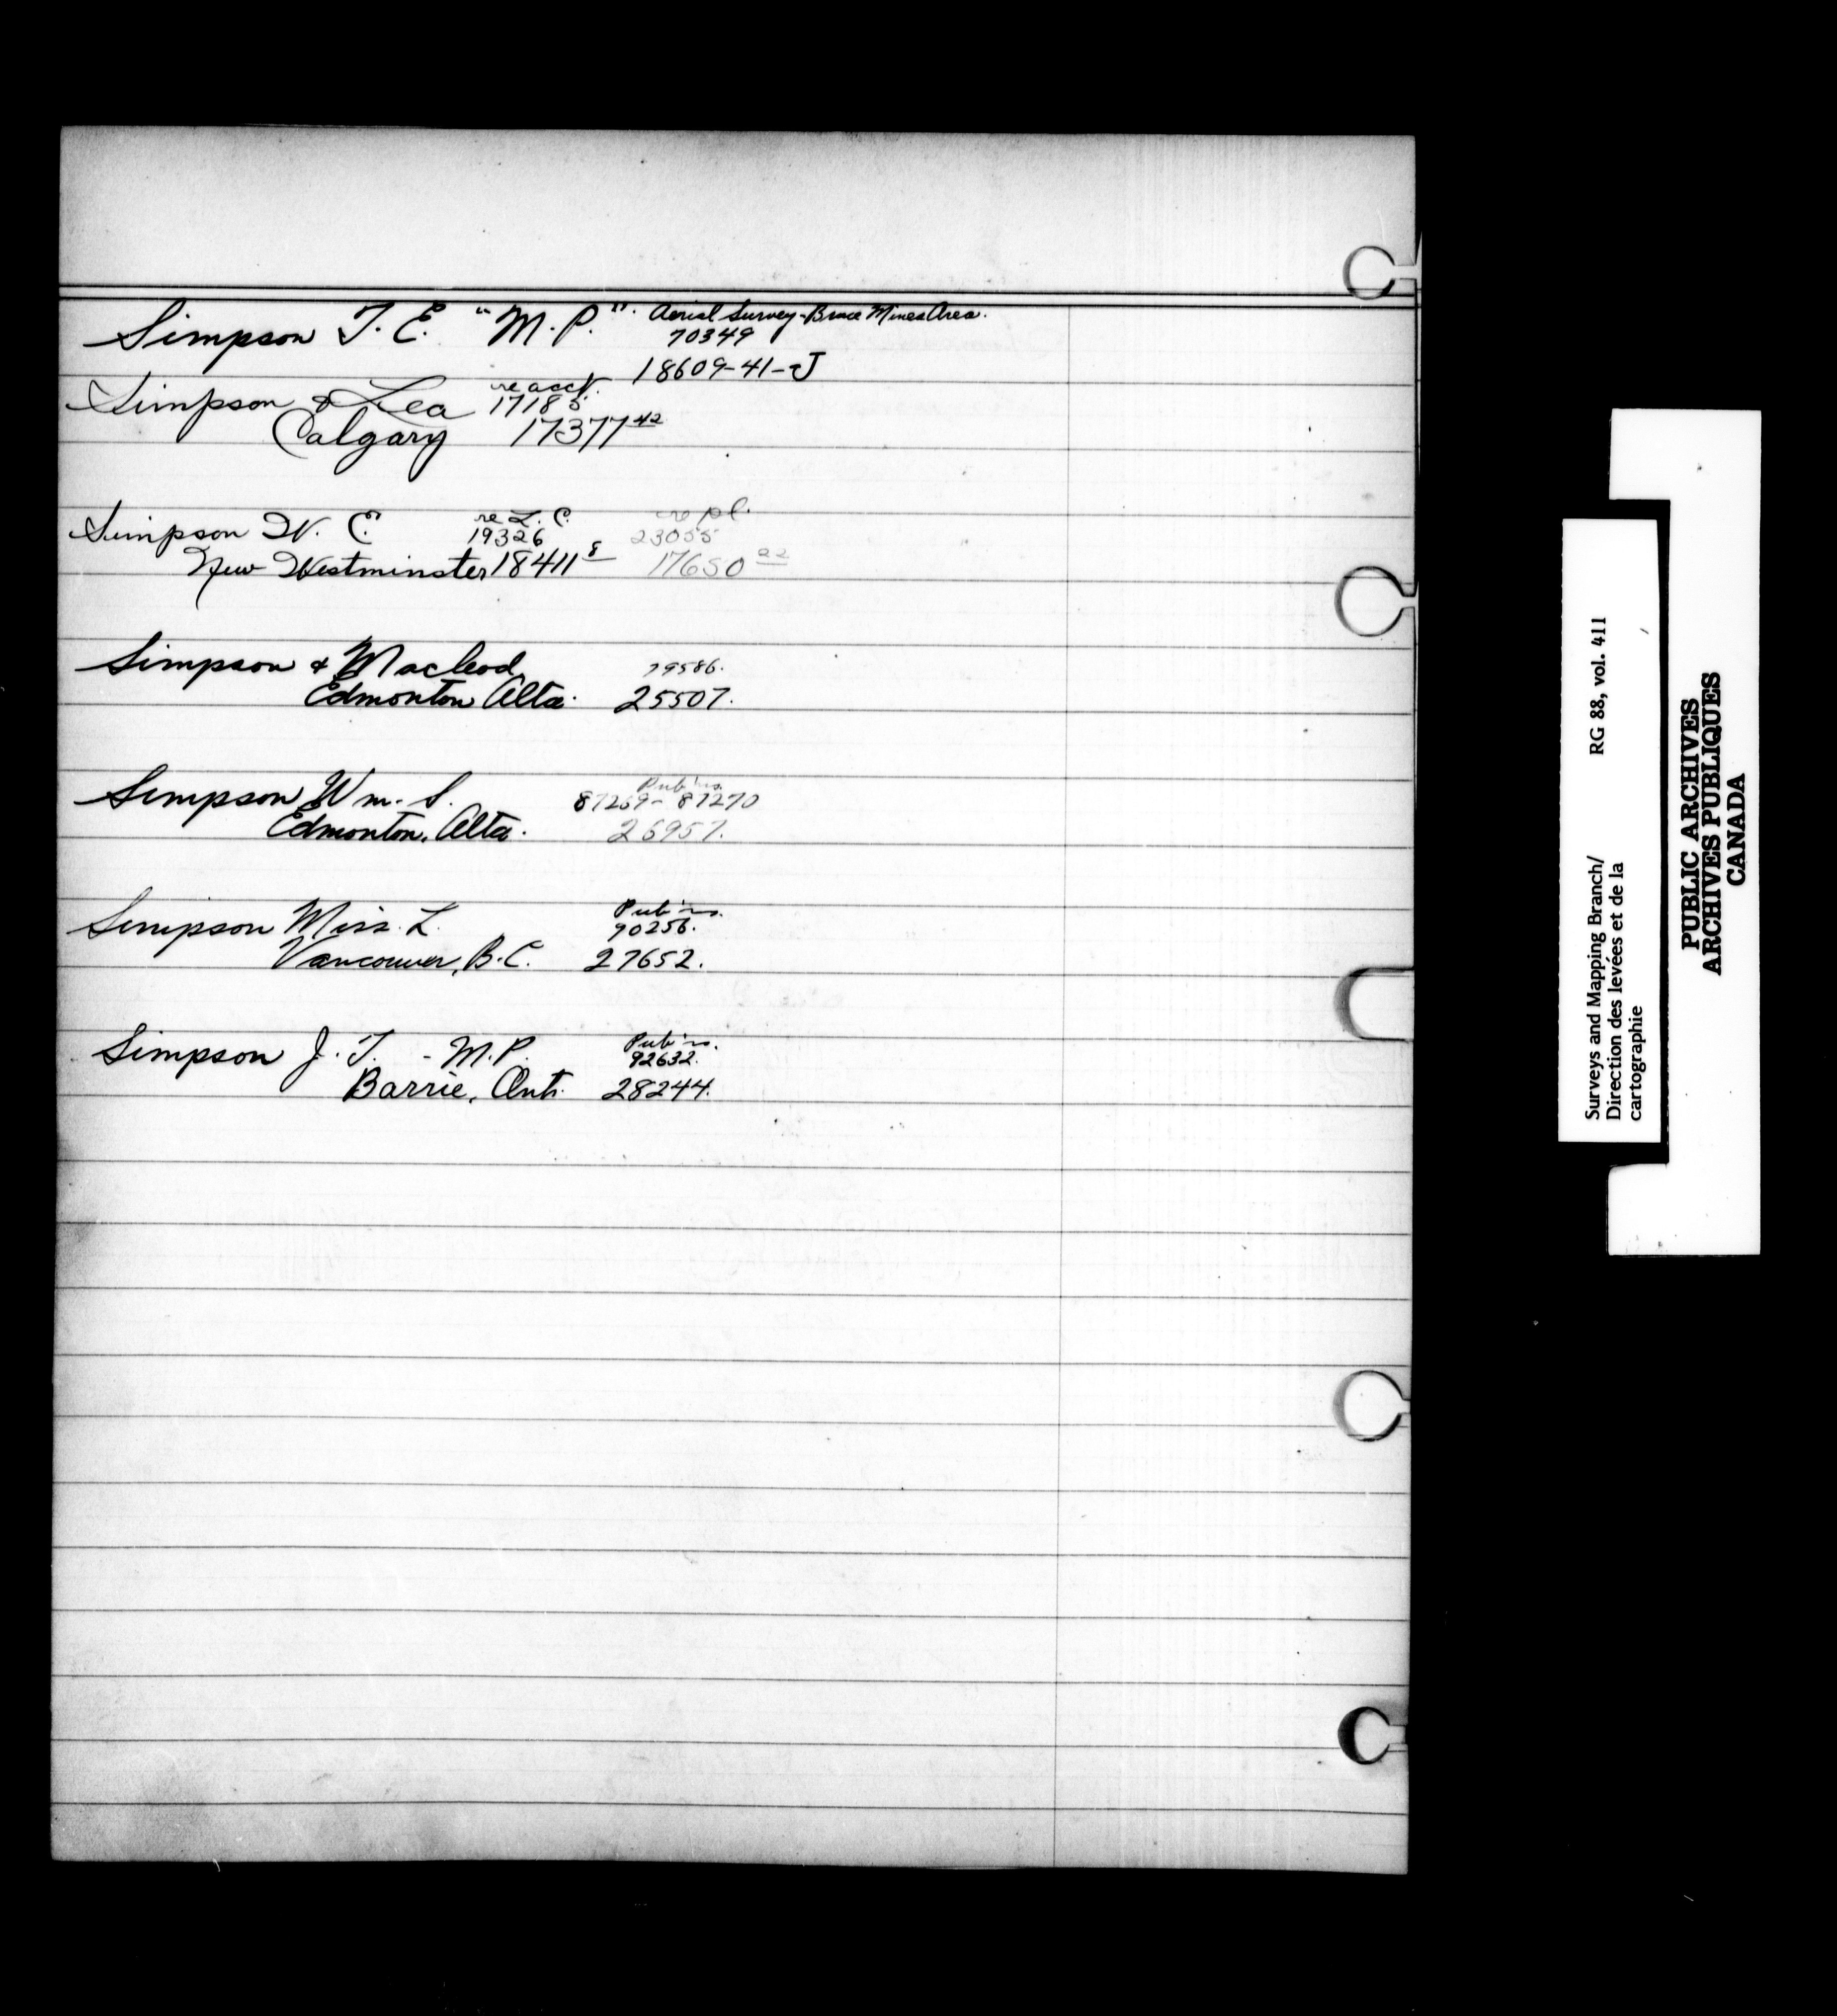 Simpson T. E. "M.P.". Aerial Survey-Bruce Mines Area.
70349
18609-41-J
Simpson & Lea re acct.
17185
Calgary 17377 42
Simpson W. C. re L. C. re pl.
19326 23055
New Westminster 18411 8 17650 22
Simpson & Macleod 79586.
Edmonton Alta. 25507.
Simpson Wm. S. Pub'ns.
87269-87270
Edmonton, Alta. 26957.
Simpson Miss. L. Pub'ns.
90256.
Vancouver, B.C. 27652.
Simpson J. T. - M.P. Pub'ns.
92632.
Barrie, Ont. 28244.
Surveys and Mapping Branch/ RG 88, vol. 411
Direction des levées et de la
cartographie
PUBLIC ARCHIVES
ARCHIVES PUBLIQUES
CANADA